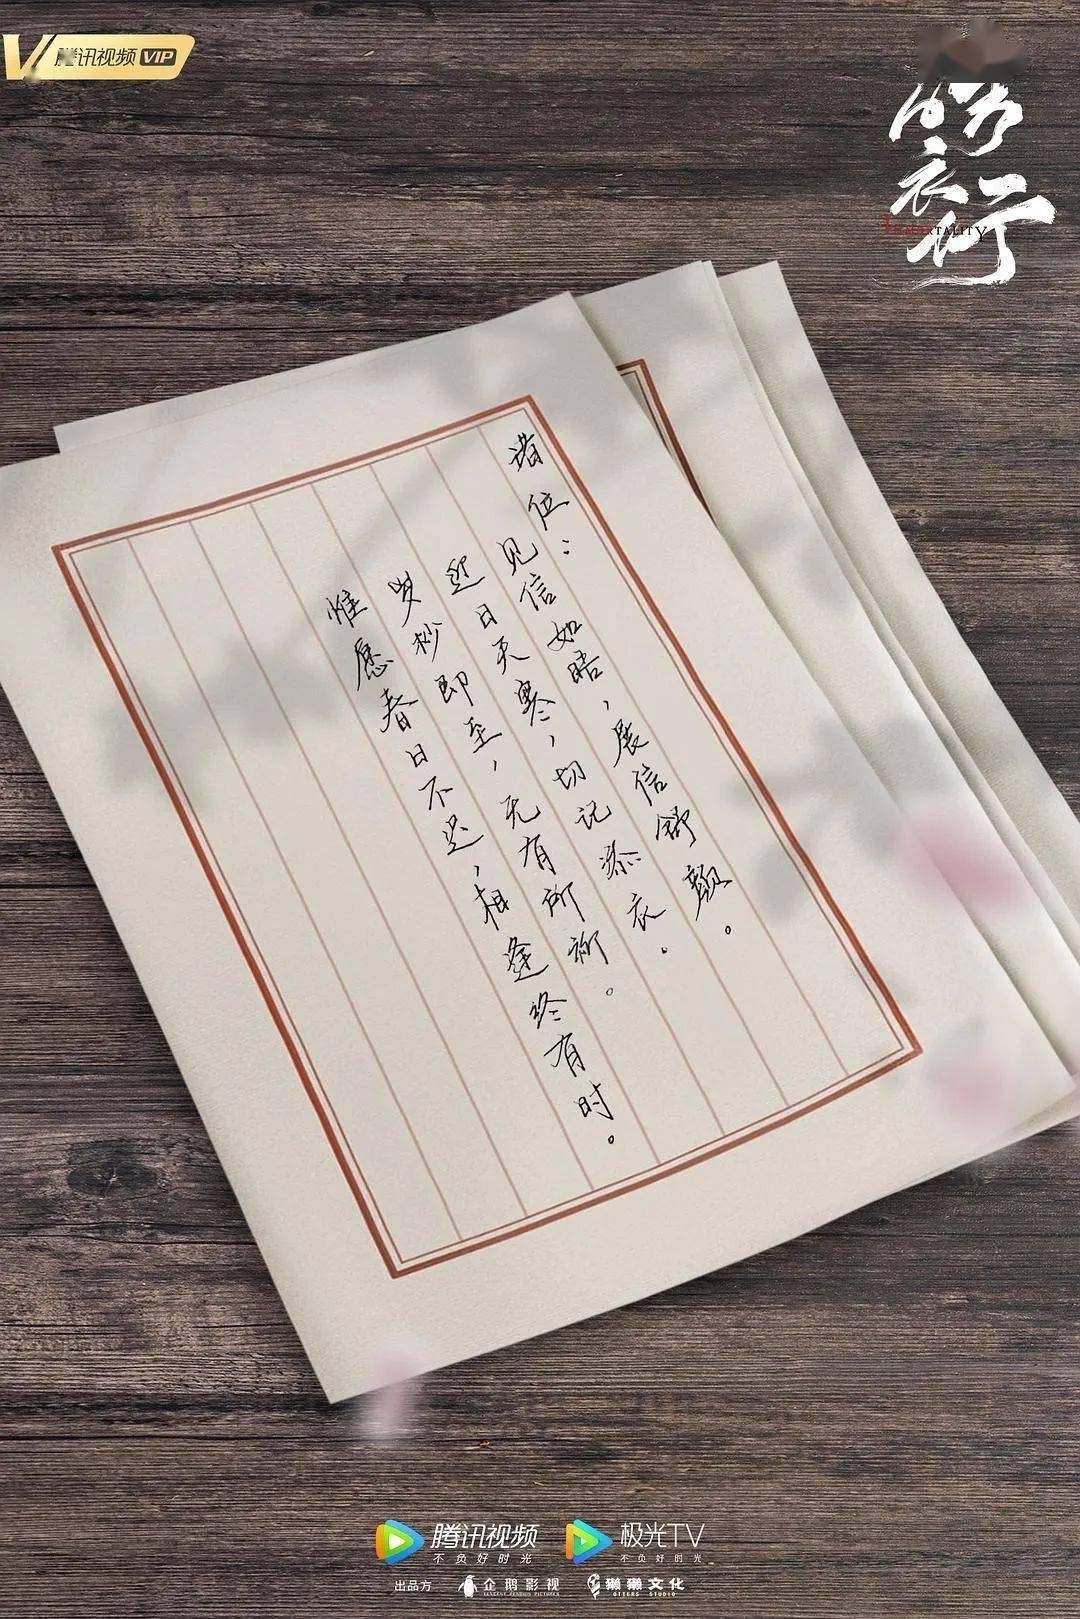 腾讯视频 VIP
衣行
IMMORTALITY
诸位：
见信如晤，展信舒颜。
近日天寒，切记添衣。
岁杪即至，无有所祈。
惟愿春日不迟，相逢终有时。
腾讯视频
不负好时光
极光TV
不负好时光
出品方
企鹅影视
TENCENT PENGUIN PICTURES
獭獭文化
OTTERS STUDIO